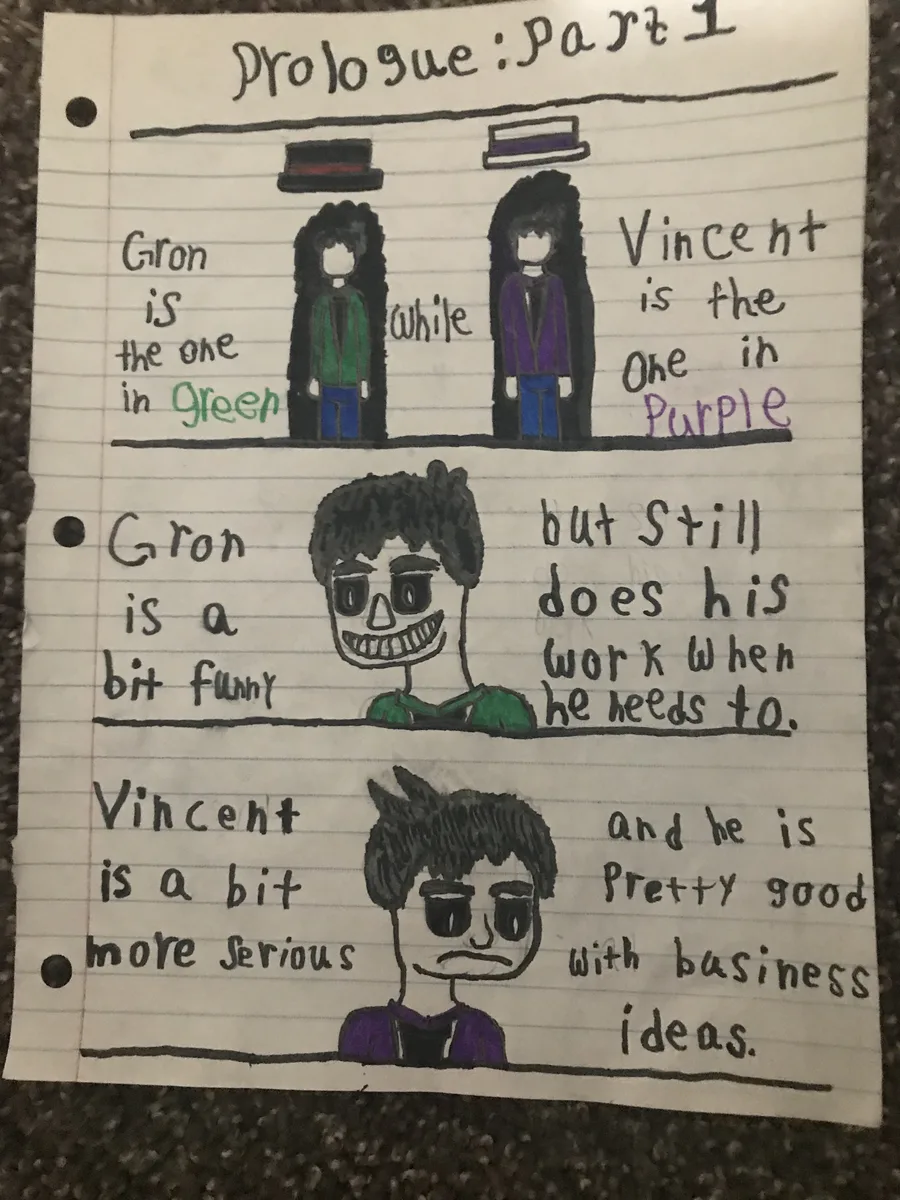 Prologue: Part 1
Gron
is
the one
in green
while
Vincent
is the
one in
Purple
Gron
is a
bit funny
but Still
does his
work when
he needs to.
Vincent
is a bit
more serious
and he is
Pretty good
with business
ideas.